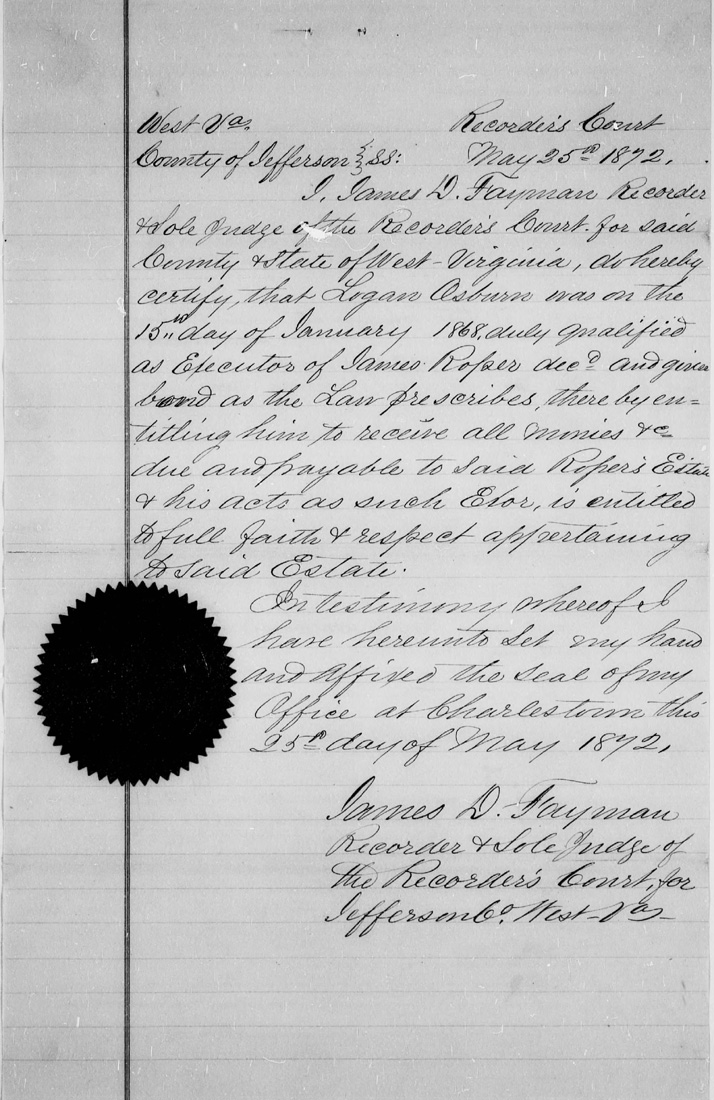 West Va. Recorder's Court
County of Jefferson } SS: May 25th 1872.
I, James D. Fayman Recorder
& Sole Judge of the Recorder's Court. for said
County & State of West-Virginia, do hereby
certify, that Logan Osburn was on the
15th day of January 1868, duly qualified
as Executor of James Roper decd and given
bond as the Law prescribes, thereby en=
titling him to receive all monies &c
due and payable to said Roper's Estate
& his acts as such Exor, is entitled
to full faith & respect appertaining
to said Estate.
In testimony whereof I
have hereunto set my hand
and affixed the seal of my
Office at Charlestown this
25th day of May 1872.
James D. Fayman
Recorder & Sole Judge of
the Recorder's Court, for
Jefferson Co. West-Va-